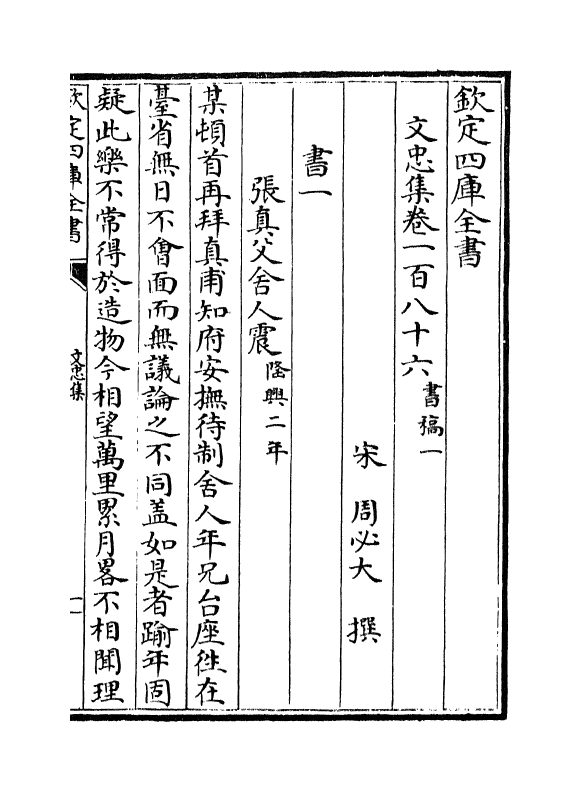 欽定四庫全書
文忠集卷一百八十六 書稿一
宋 周必大 撰
書一
張真父舍人震 隆興二年
某頓首再拜真甫知府安撫待制舍人年兄台座徃在
臺省無日不㑹面而無議論之不同盖如是者踰年固
疑此樂不常得於造物今相望萬里累月畧不相聞理
欽定四庫全書
文忠集
一